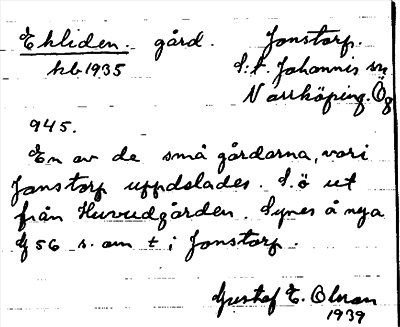 Ekliden. gård. Jonstorp.
hb 1935 S:t. Johannis sn
Norrköping. Ög
945.
En av de små gårdarna, vari
Jonstorp uppdelades. S.ö ut
från Huvudgården. Synes å nya
G 56 s. om t i Jonstorp.
Gustaf E. Olsson
1939